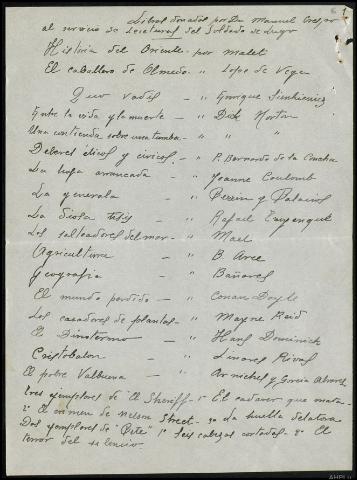 Libros donados por Dn Manuel Crespo
al servicio de Lecturas del Soldado de Lugo
Historia del Oriente - por Malet
El caballero de Olmedo - " Lope de Vega
Quo vadis - " Enrique Sienkiewicz
Entre la vida y la muerte - " Dick Norton
Una contienda sobre una tumba - " "
Deberes éticos y cívicos. - " P. Bernardo de la Concha
La hoja arrancada - " Jeanne Coulomb
La generala - " Perrin y Palacios
La diosa - " Rafael
Los salteadores del mar - " Mael
Agricultura - " B. Arce
Geografia - " Bañares
El mundo perdido - " Conan Doyle
Los cazadores de plantas - " Mayne Reid
El Dinotermo - " Hans Dominick
Cristobalon - " Linares Rivas
El pobre Valbuena - " Arniches y Garcia Alvarez
tres ejemplares de "El Sheriff" 1º El cadaver que mata -
2º El crimen de Nelson Street - 3º La huella delatora
Dos ejemplares de "Este" 1º Seis cabezas cortadas - 2º El
terror del silencio